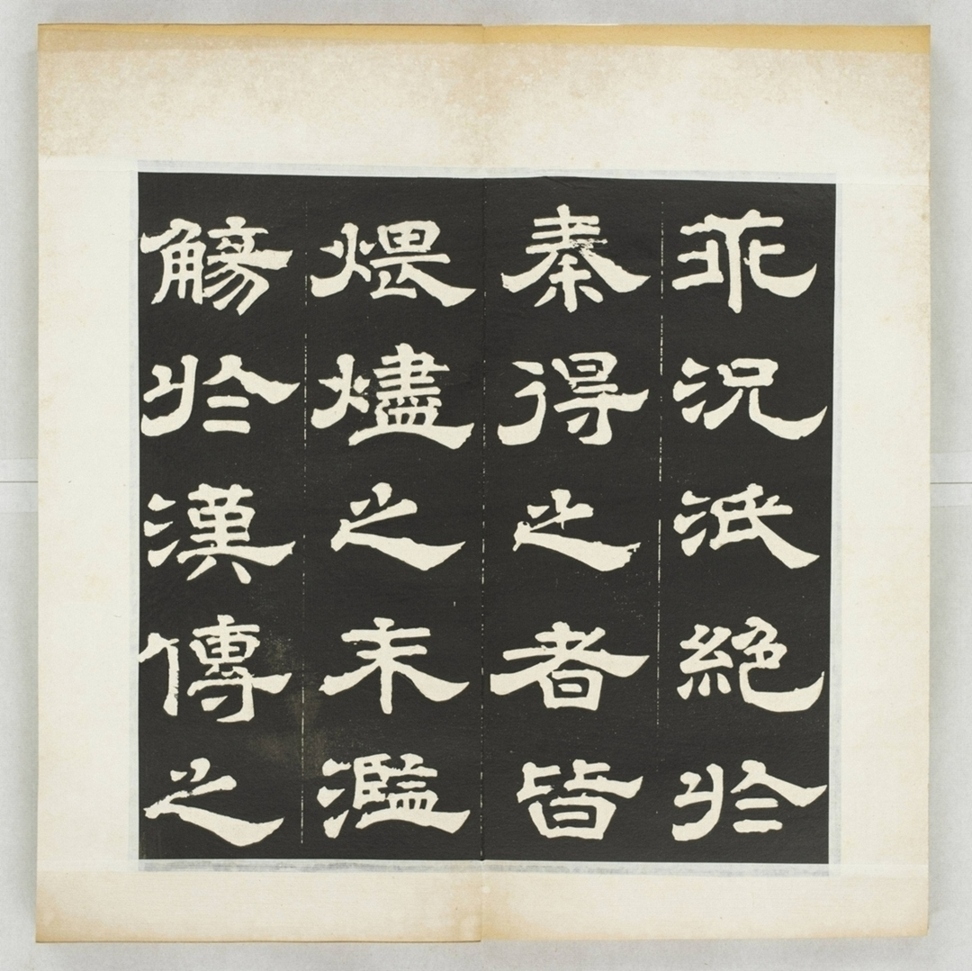 乖況泯絶於
秦得之者皆
煨燼之末濫
觴於漢傳之